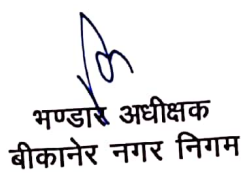 भण्डार अधीक्षक
बीकानेर नगर निगम